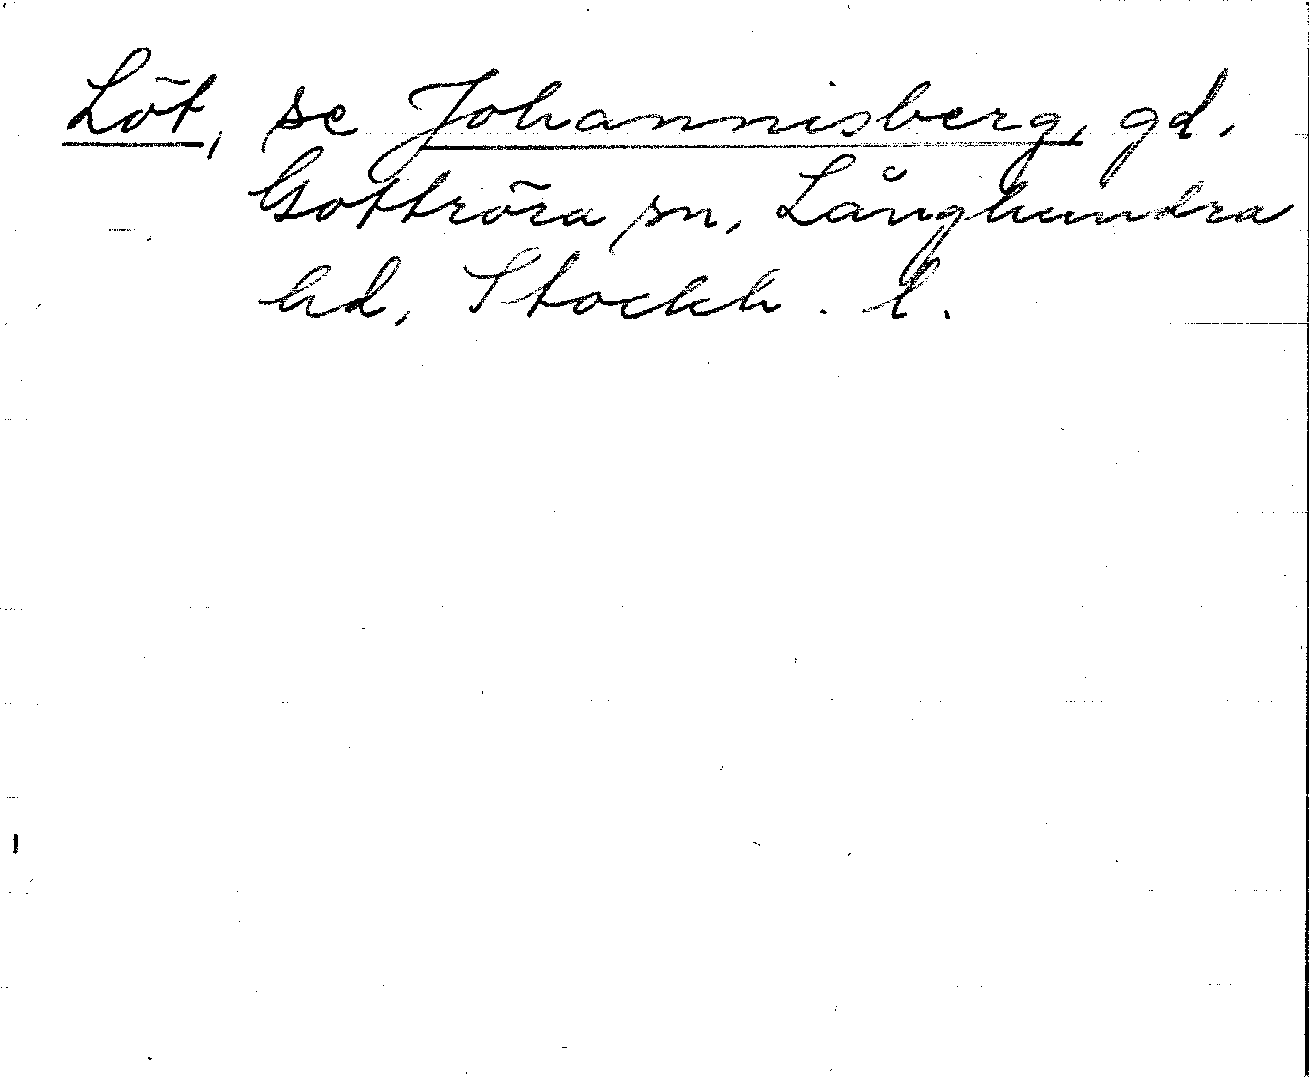 Löt, se Johannisberg, gd.
Gottröra sn, Långhundra
hd, Stockh. l.